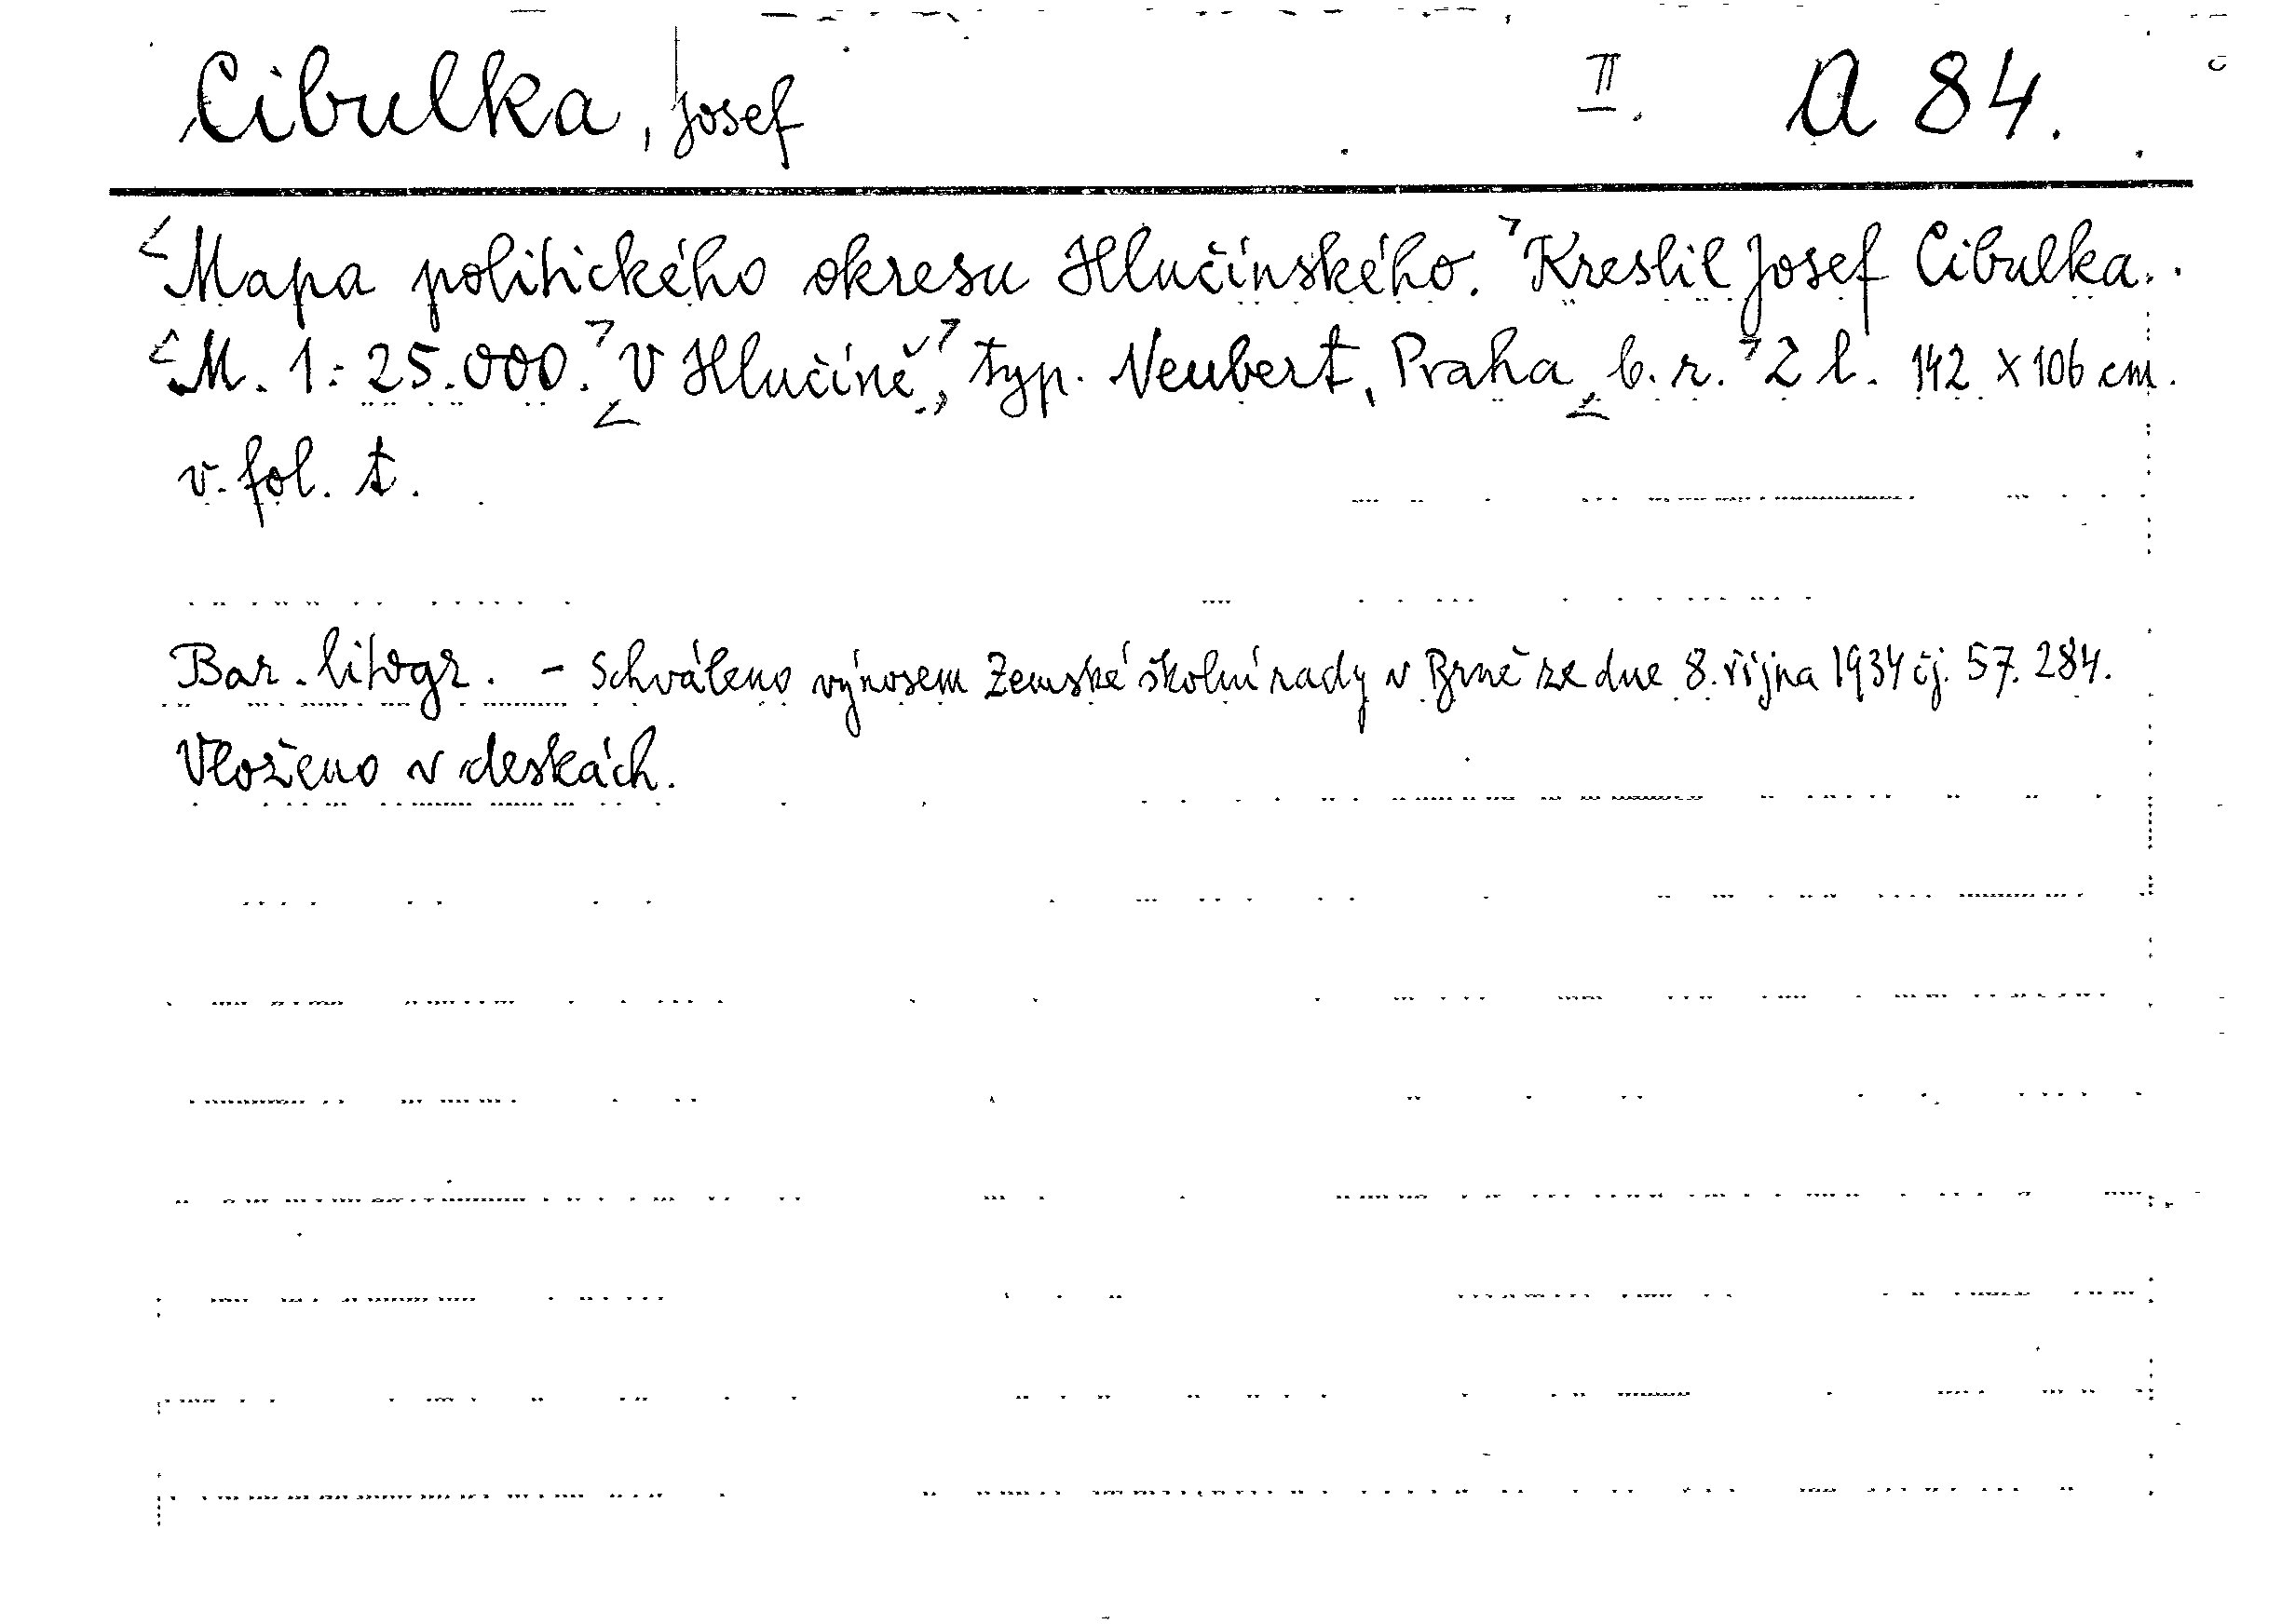 Cibulka, Josef II. A 84.
<Mapa politického okresu Hlučínského.> Kreslil Josef Cibulka.
<M. 1:25.000.> <V Hlučíně,> typ. Neubert, Praha <b. r.> 2 l. 142 x 106 cm.
v. fol. t.
Bar. litogr. - Schváleno výnosem Zemské školní rady v Brně ze dne 8. října 1934 čj. 57.284.
Vloženo v deskách.